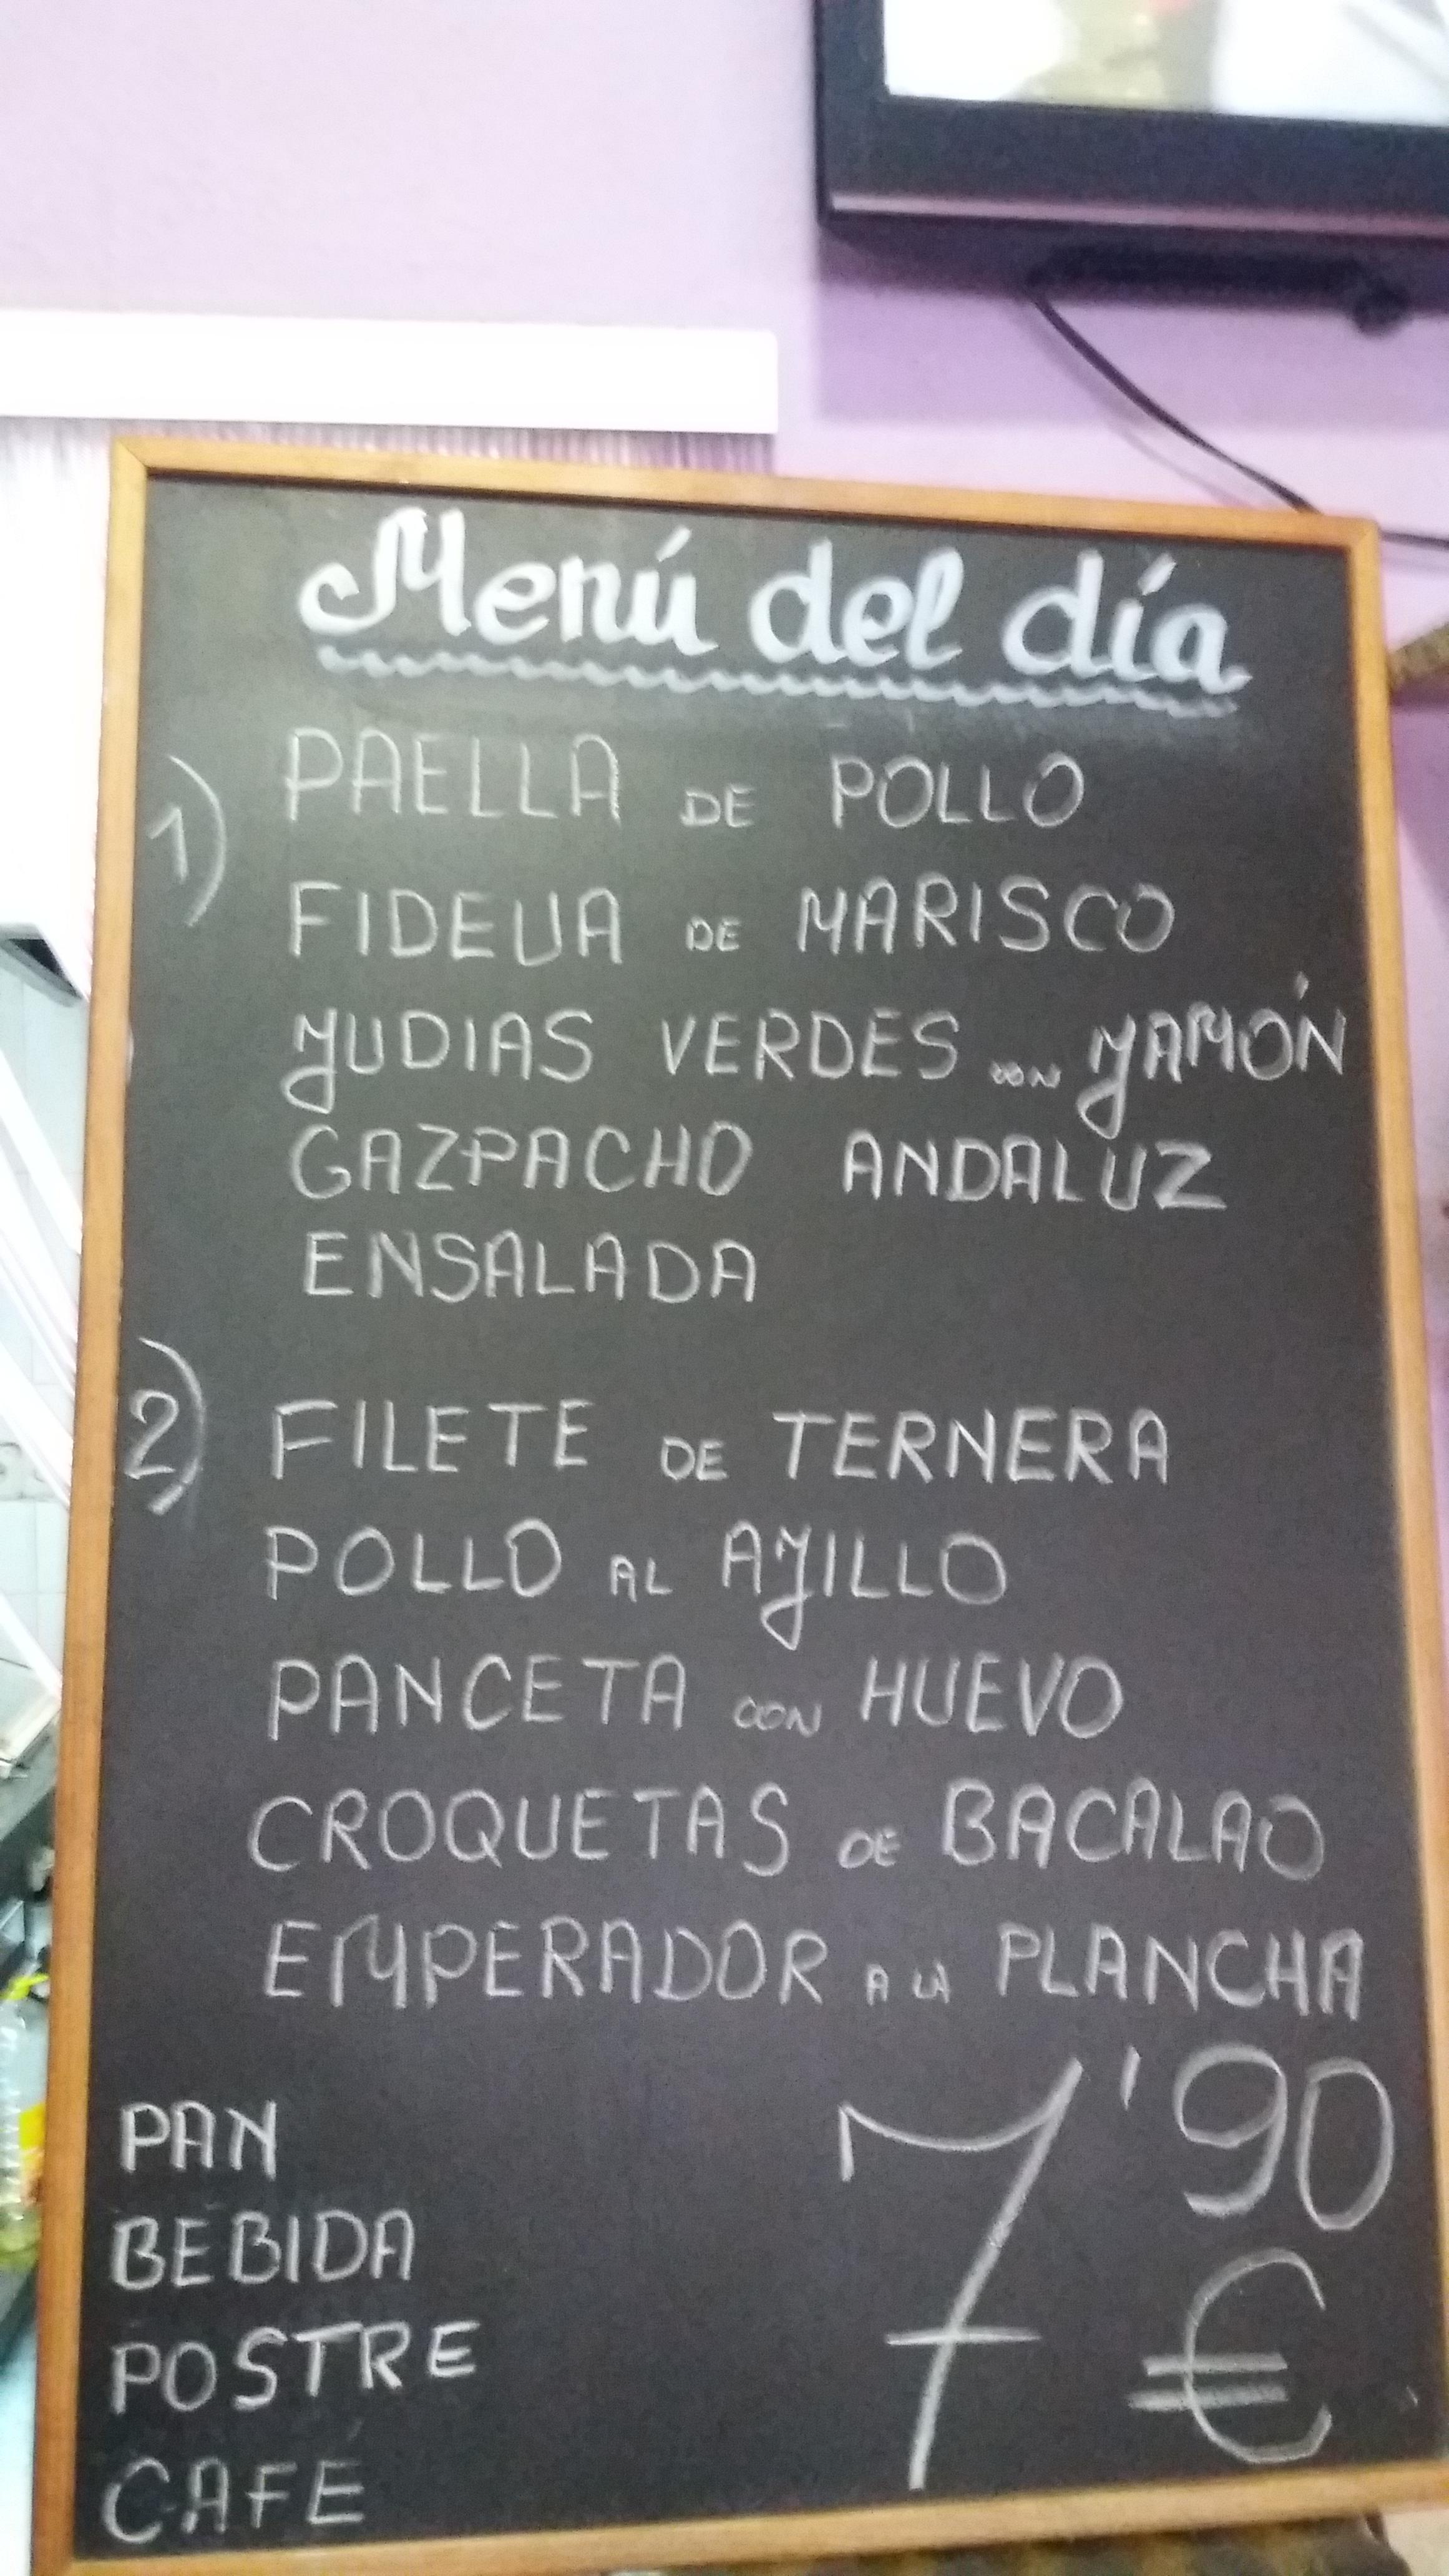 Menú del día
1) PAELLA DE POLLO
FIDEUA DE MARISCO
JUDIAS VERDES CON JAMÓN
GAZPACHO ANDALUZ
ENSALADA
2) FILETE DE TERNERA
POLLO AL AJILLO
PANCETA CON HUEVO
CROQUETAS DE BACALAO
EMPERADOR A LA PLANCHA
PAN
BEBIDA
POSTRE
CAFE
7'90
€